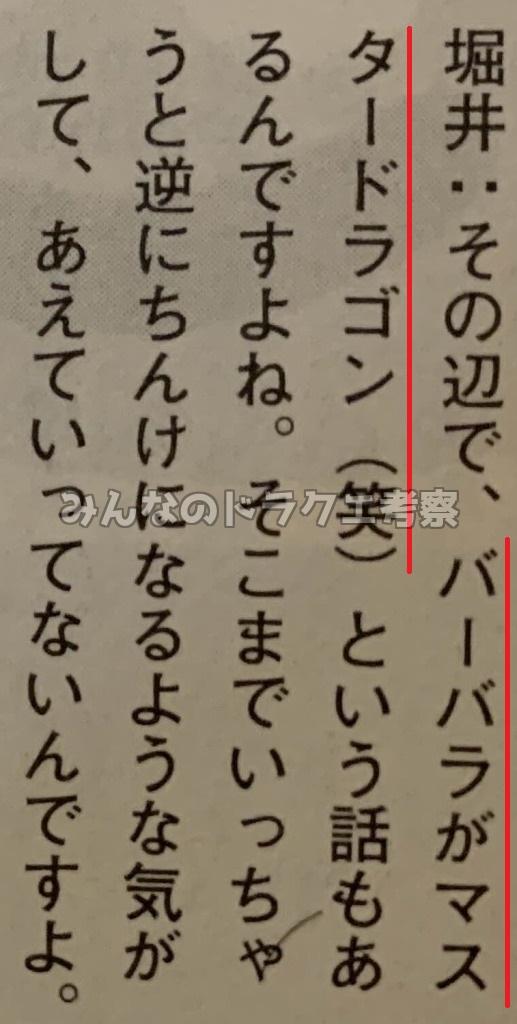 堀井：その辺で、バーバラがマス
タードラゴン（笑）という話もあ
るんですよね。そこまでいっちゃ
うと逆にちんけになるような気が
して、あえていってないんですよ。
みんなのドラクエ考察